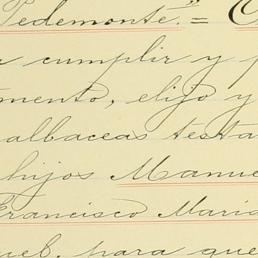 Pedemonte." = C
r cumplir y p
mento, elijo y
albaceas testa
hijos Manue
Francisco Maria
uel, para que